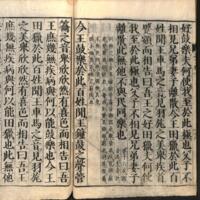 好鼓樂夫何使我至於此極也父子不
相見兄弟妻子離散今王田獵於此百
姓聞王車馬之音見羽旄之美舉疾首
蹙頞而相告曰吾王之好田獵夫何使
我至於此極也父子不相見兄弟妻子
離散此無他不與民同樂也
今王鼓樂於此百姓聞王鐘鼓之聲管
籥之音舉欣欣然有喜色而相告曰吾
王庶幾無疾病與何以能鼓樂也今王
田獵於此百姓聞王車馬之音見羽旄
之美舉欣欣然有喜色而相告曰吾王
庶幾無疾病與何以能田獵也此無